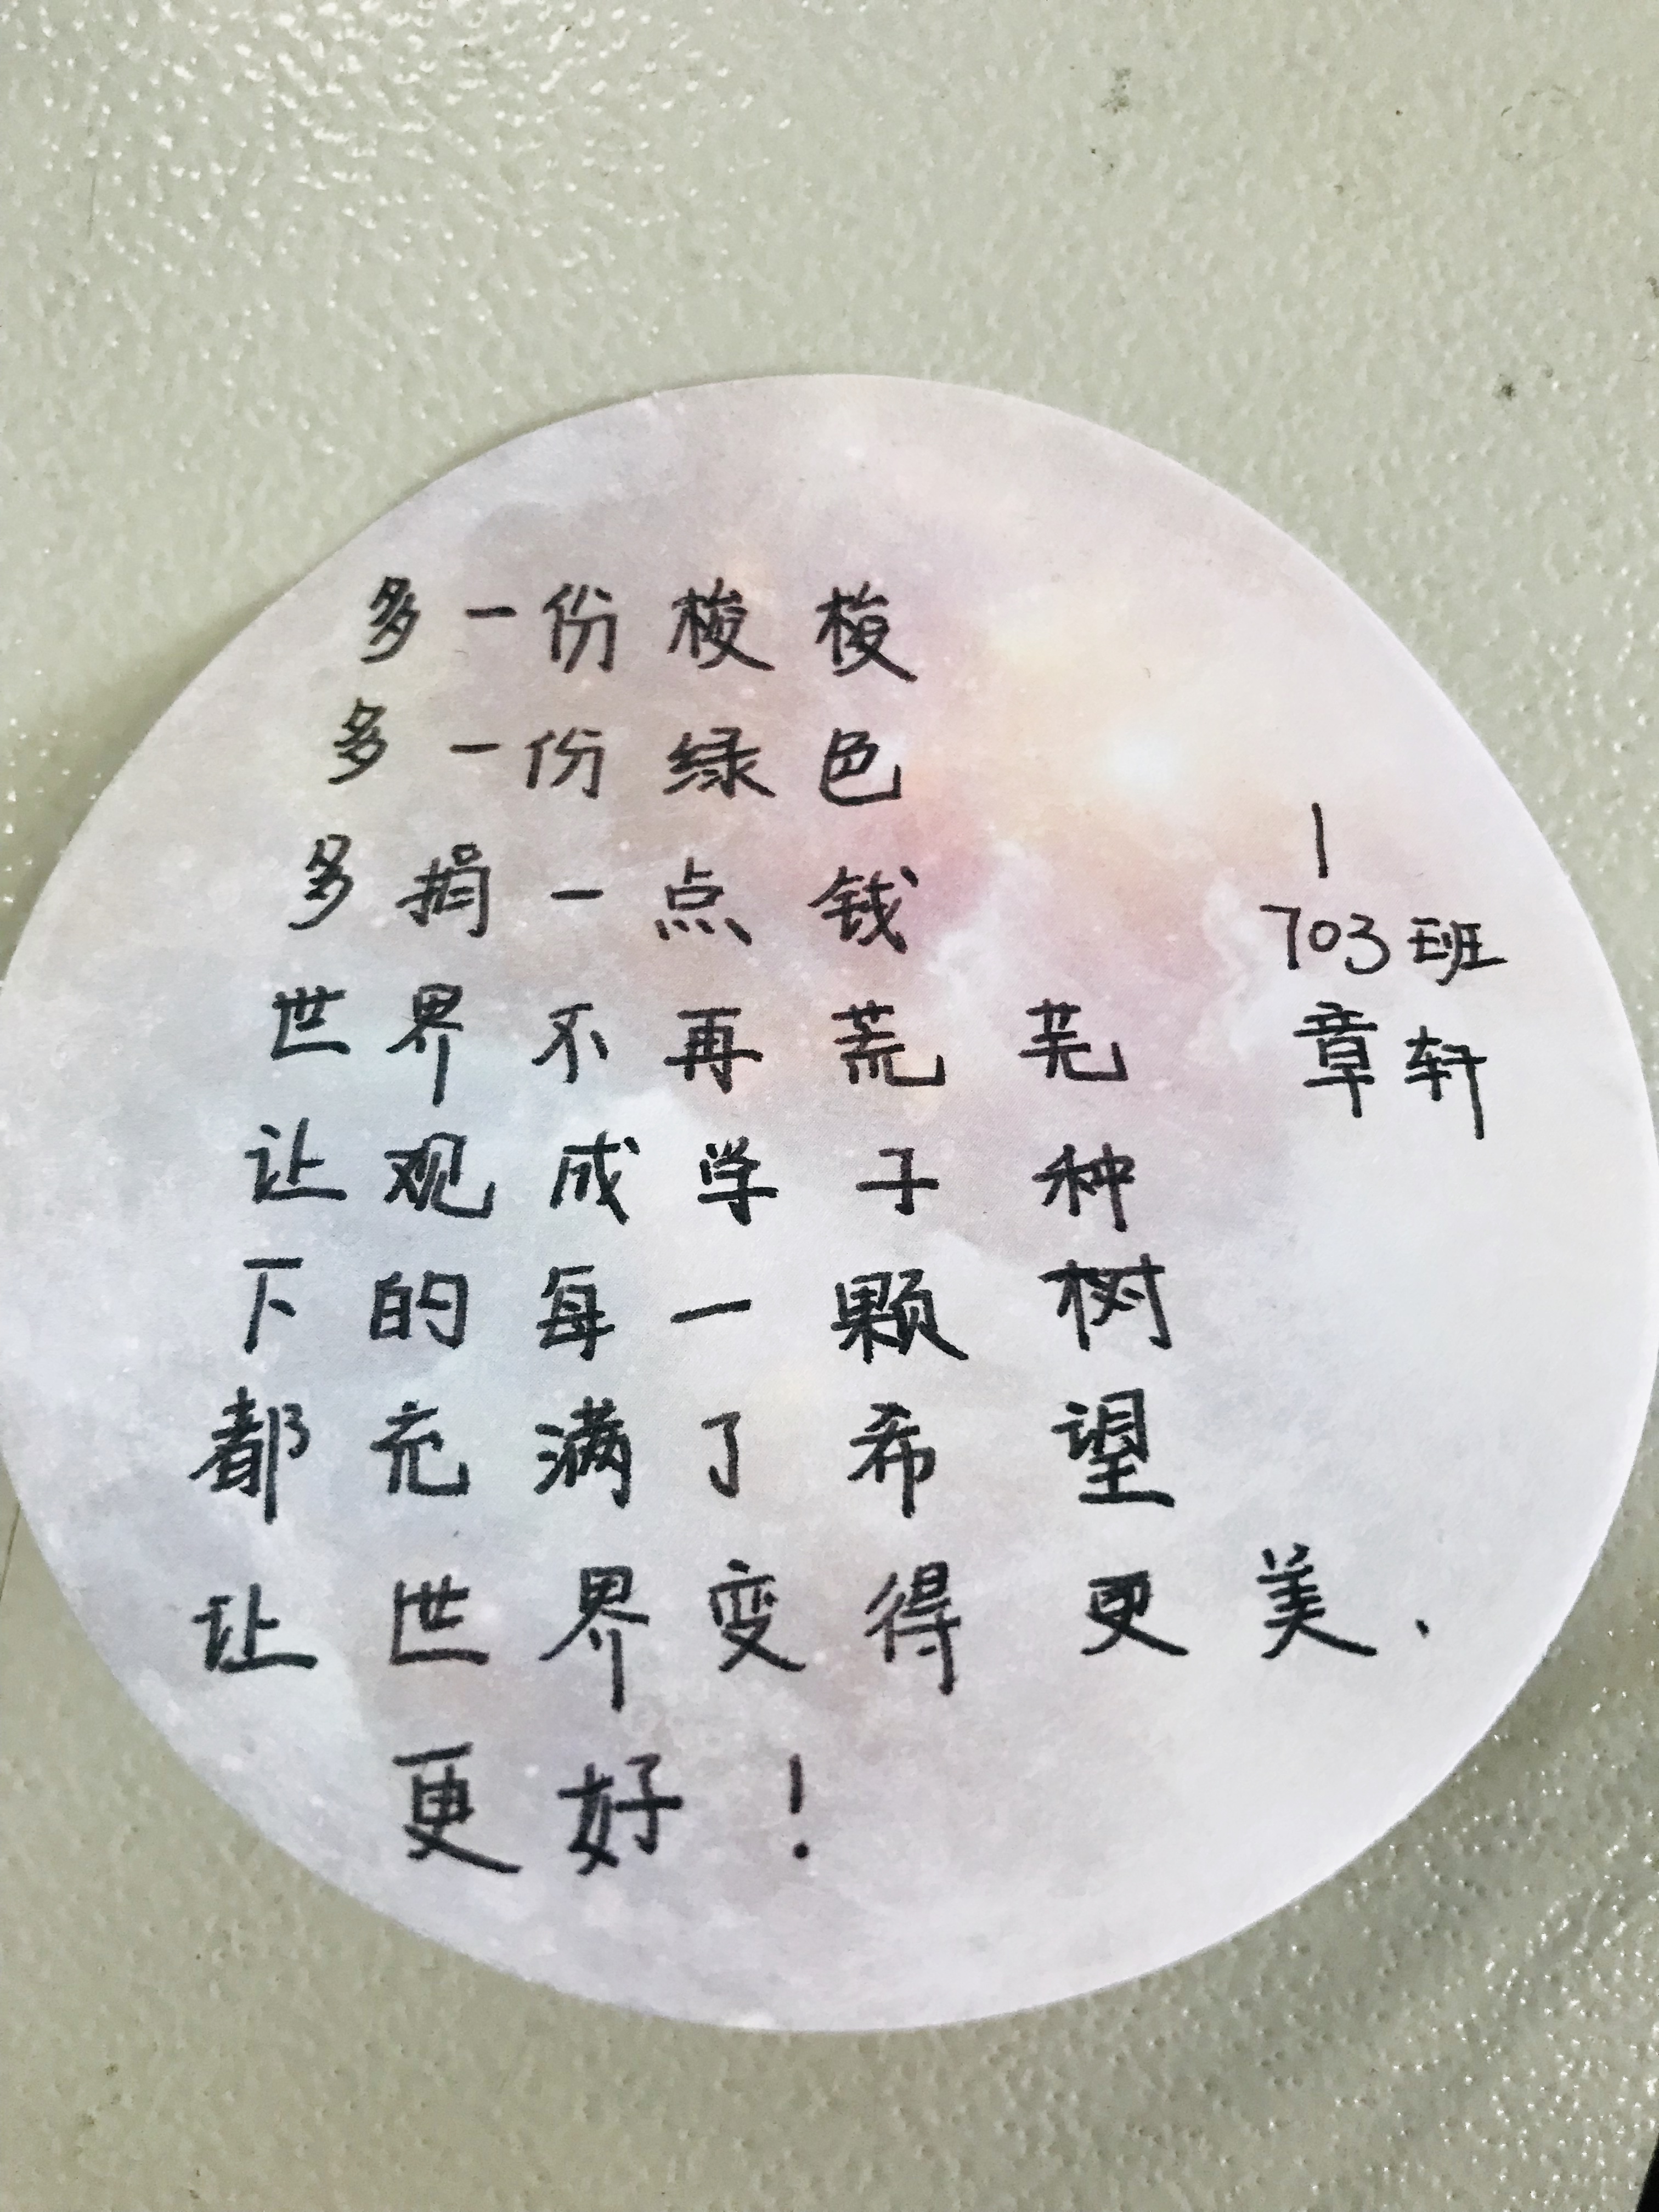 多一份梭梭
多一份绿色
多捐一点钱
世界不再荒芜
让观成学子种
下的每一颗树
都充满了希望
让世界变得更美、
更好！
|
703班
章轩